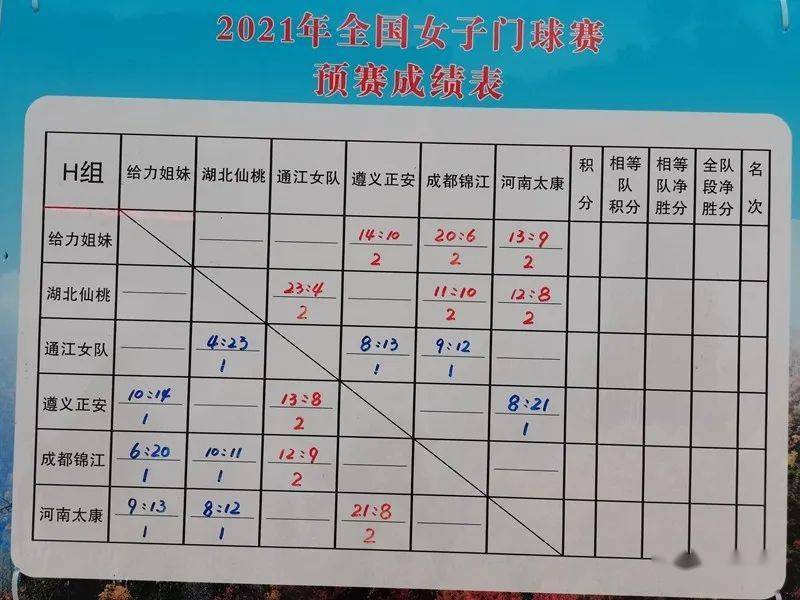 2021年全国女子门球赛
预赛成绩表
H组 给力姐妹 湖北仙桃 通江女队 遵义正安 成都锦江 河南太康 积分 相等队积分 相等队净胜分 全队段净胜分 名次
给力姐妹 14:10 20:6 13:9
2 2 2
湖北仙桃 23:4 11:10 12:8
2 2 2
通江女队 4:23 8:13 9:12
1 1 1
遵义正安 10:14 13:8 8:21
1 2 1
成都锦江 6:20 10:11 12:9
1 1 2
河南太康 9:13 8:12 21:8
1 1 2